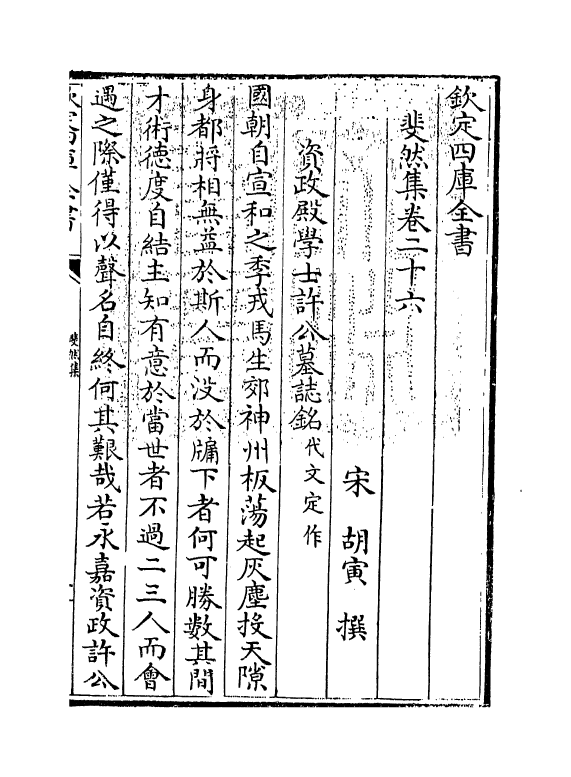 欽定四庫全書
斐然集卷二十六
宋 胡寅 撰
資政殿學士許公墓誌銘代文定作
國朝自宣和之季戎馬生郊神州板蕩起灰塵投天隙
身都將相無益於斯人而没於牖下者何可勝數其間
才術德度自結主知有意於當世者不過二三人而會
遇之際僅得以聲名自終何其艱哉若永嘉資政許公
斐然集